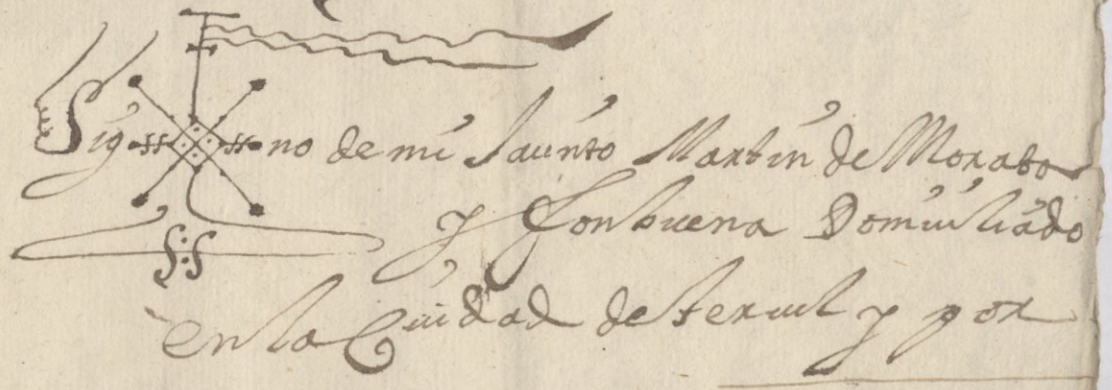 Sig no de mi Jacinto Martin de Morata
y Fonbuena Domiciliado
en la Ciudad de Teruel y por